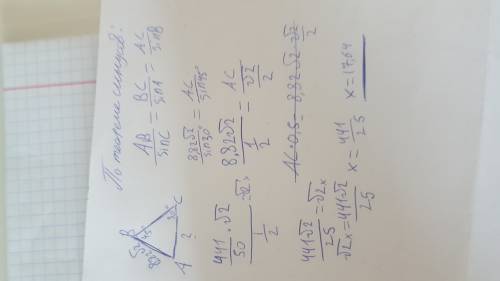 По теореме синусов:
AB/sinC = BC/sinA = AC/sinB
8,82√2/sin30° = AC/sin45°
8,82√2/(1/2) = AC/(√2/2)
AC·0,5 = 8,82√2·√2/2
B
45°
30°
A
?
C
441√2/25 = √2x
√2x = 441√2/25
x = 441/25
x = 17,64